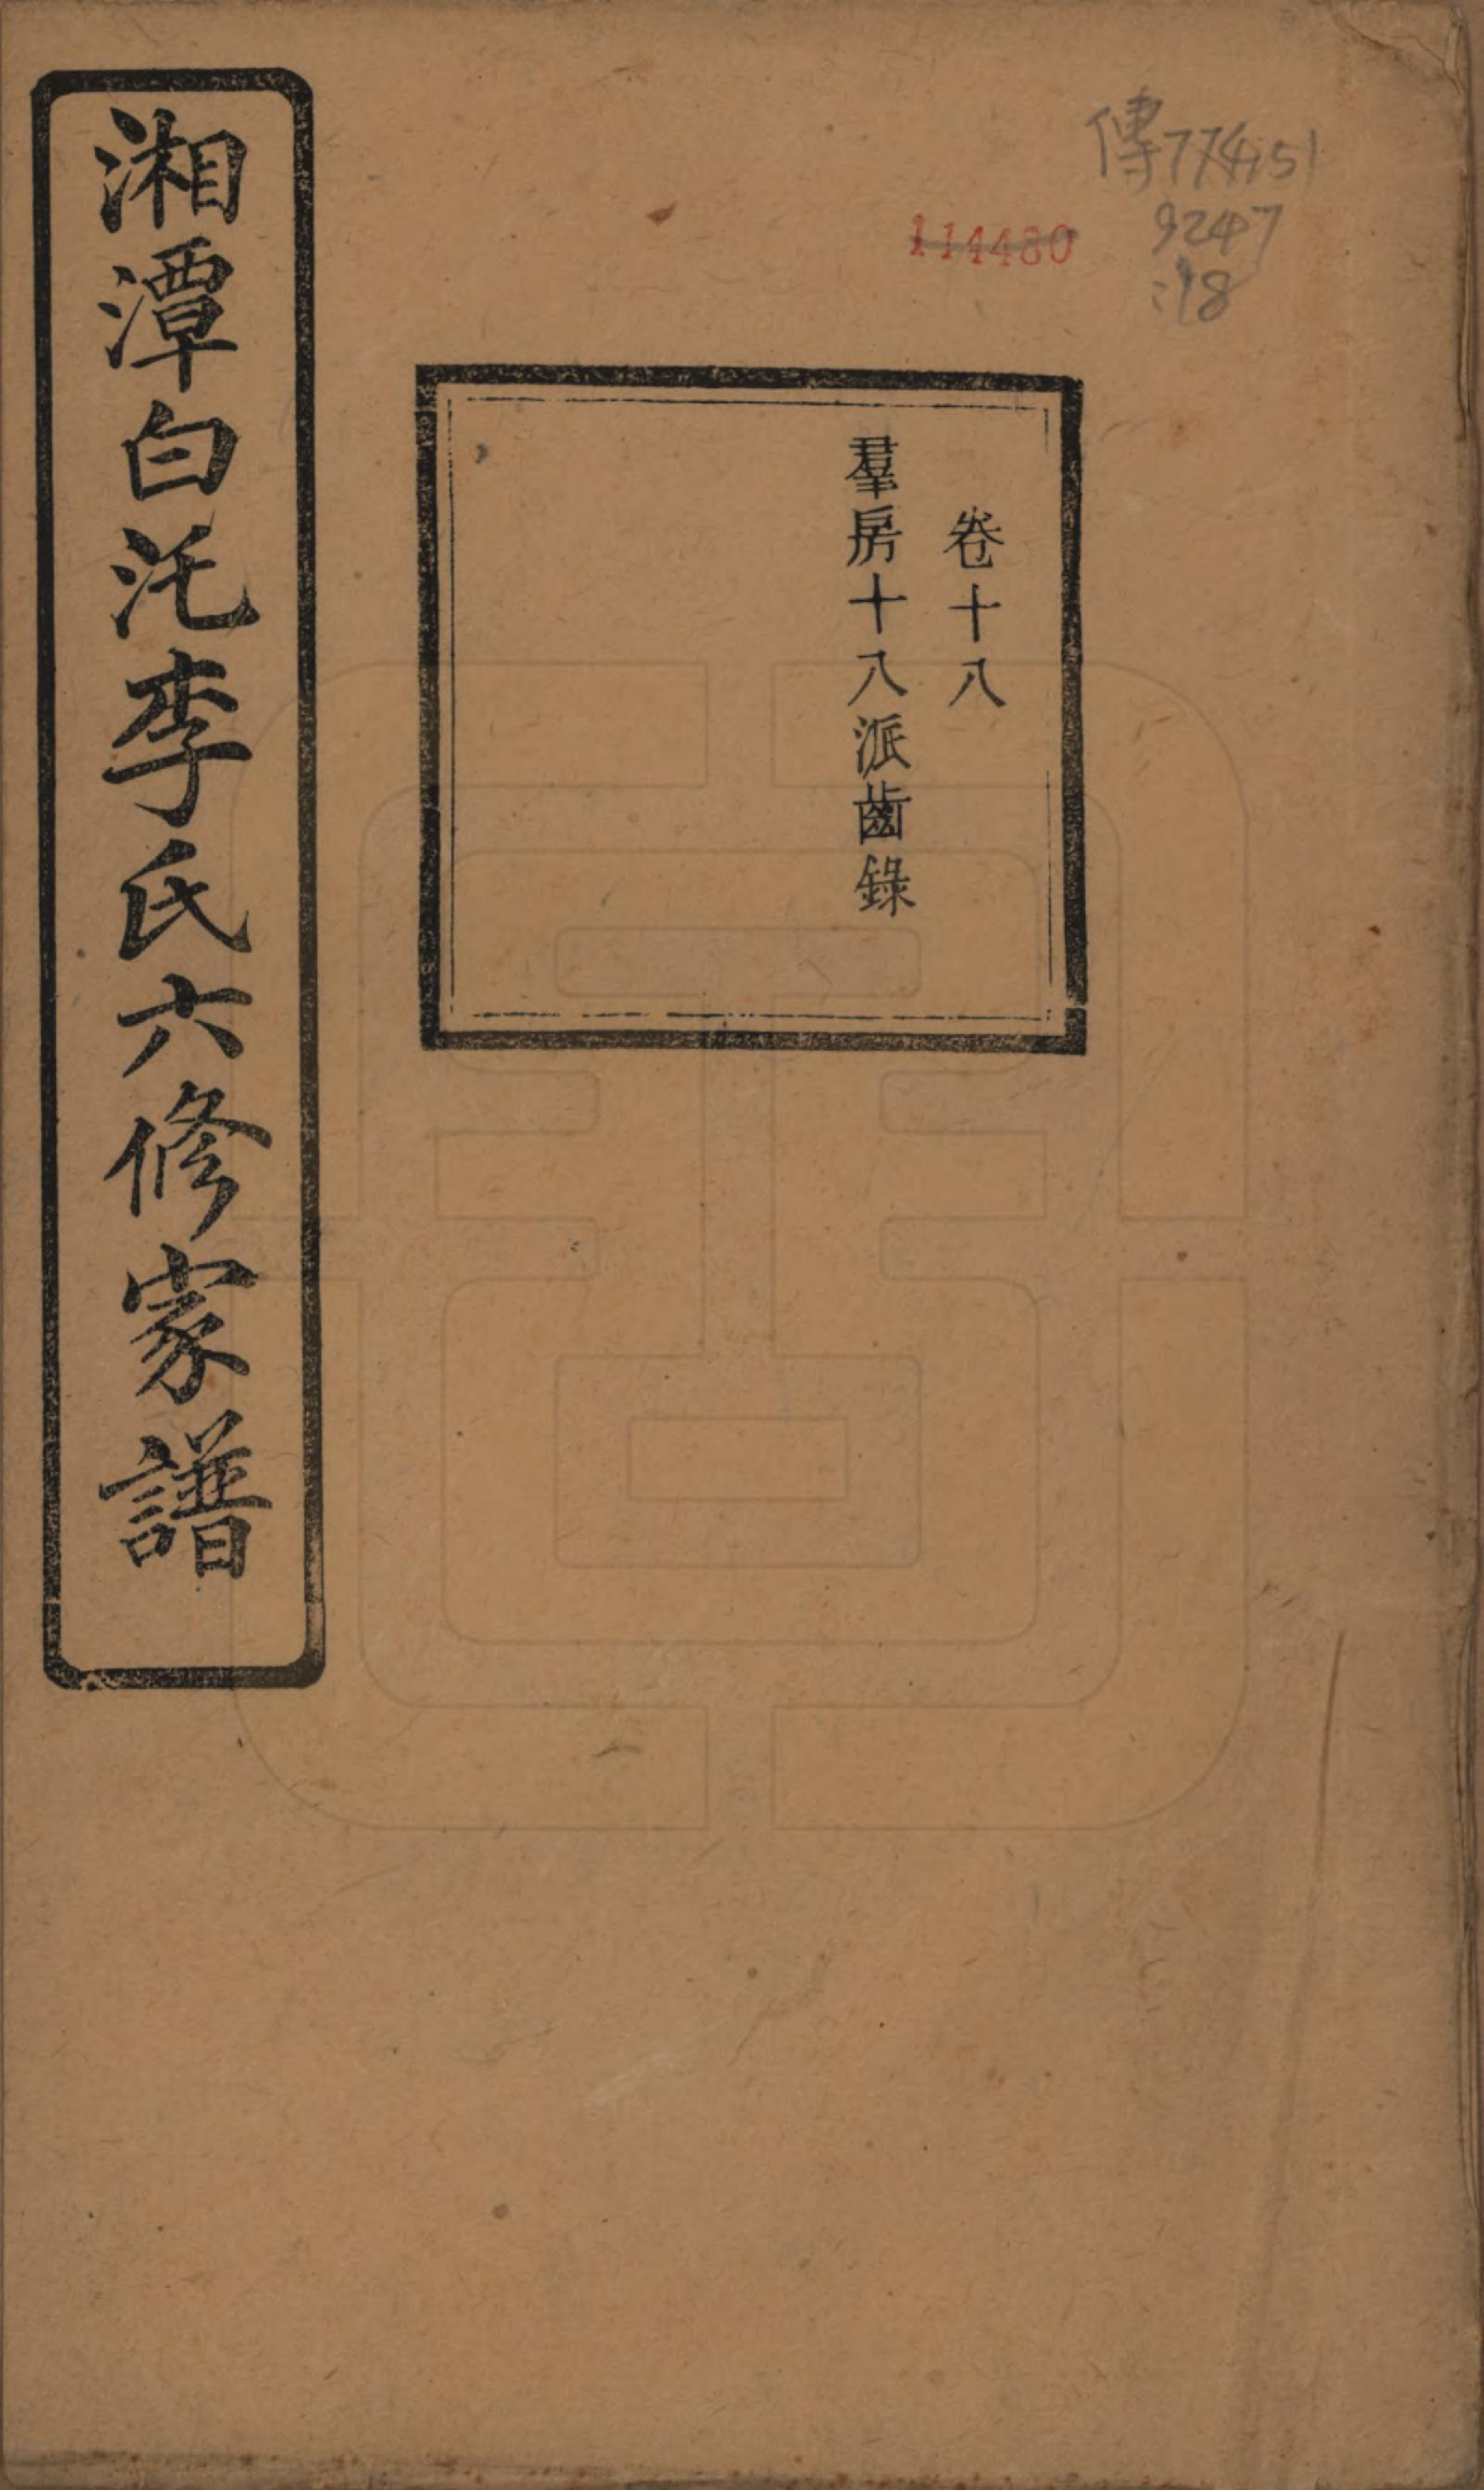 傳774.51
9247
:18
114480
卷十八
羣房十八派齒錄
湘潭白汑李氏六修家譜